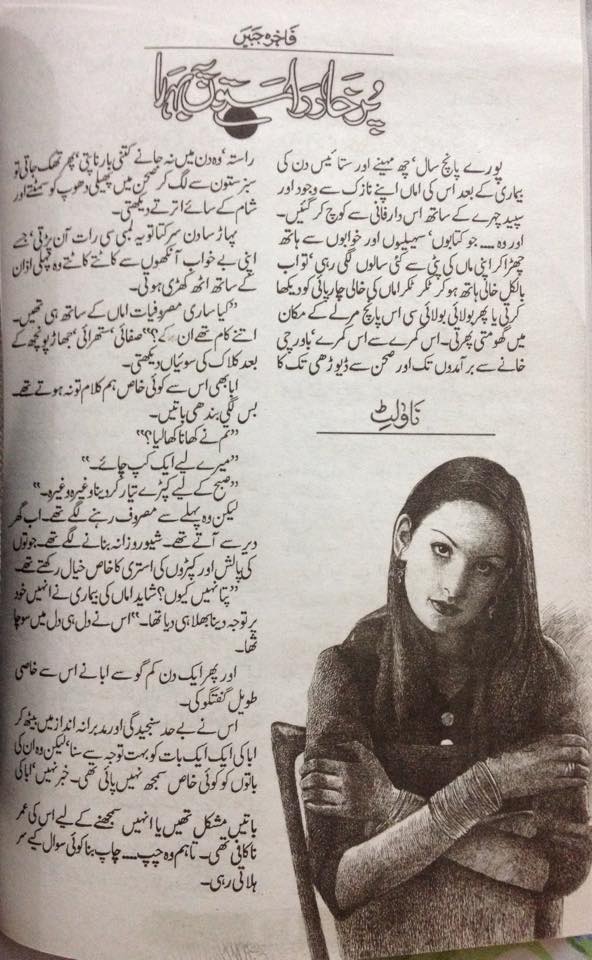 فاخرہ جبیں
پُرخار راستوں پہ
ناولٹ
پورے پانچ سال، چھ مہینے اور ستائیس دن کی
بیماری کے بعد اس کی اماں اپنے نازک سے وجود اور
سپید چہرے کے ساتھ اس دار فانی سے کوچ کر گئیں۔
اور وہ .... جو کتابوں، سہیلیوں اور خوابوں سے ہاتھ
چھڑا کر اپنی ماں کی پٹی سے کئی سالوں لگی رہی، تو اب
بالکل خالی ہاتھ ہو کر ٹکر ٹکر اماں کی خالی چارپائی کو دیکھا
کرتی یا پھر بولائی بولائی سی اس پانچ مرلے کے مکان
میں گھومتی پھرتی۔ اس کمرے سے اس کمرے، باورچی
خانے سے برآمدوں تک اور صحن سے ڈیوڑھی تک کا
راستہ، وہ دن میں نہ جانے کتنی بار ناپتی، پھر تھک جاتی تو
سبز ستون سے لگ کر صحن میں پھیلی دھوپ کو سمٹتے اور
شام کے سائے اترتے دیکھتی۔
پہاڑ سا دن سرکتا تو یہ لمبی سی رات آن پڑتی، جسے
اپنی بے خواب آنکھوں سے کاٹتے کاٹتے وہ پہلی اذان
کے ساتھ اٹھ کھڑی ہوتی۔
”کیا ساری مصروفیات اماں کے ساتھ ہی تھیں۔
اتنے کام تھے ان کے؟“ صفائی، ستھرائی، جھاڑ پونچھ کے
بعد کلاک کی سوئیاں دیکھتی۔
ابا بھی اس سے کوئی خاص ہم کلام تو نہ ہوتے تھے۔
بس لگی بندھی باتیں۔
”تم نے کھانا کھا لیا؟“
”میرے لیے ایک کپ چائے۔“
”صبح کے لیے کپڑے تیار کر دینا وغیرہ وغیرہ۔“
لیکن وہ پہلے سے مصروف رہنے لگے تھے۔ اب گھر
دیر سے آتے تھے۔ شیو روزانہ بنانے لگے تھے۔ جوتوں
کی پالش اور کپڑوں کی استری کا خاص خیال رکھتے تھے۔
”پتا نہیں کیوں؟ شاید اماں کی بیماری نے انہیں خود
پر توجہ دینا بھلا ہی دیا تھا۔“ اس نے دل ہی دل میں سوچا
تھا۔
اور پھر ایک دن کم گو سے ابا نے اس سے خاصی
طویل گفتگو کی۔
اس نے بے حد سنجیدگی اور مدبرانہ انداز میں بیٹھ کر
ابا کی ایک ایک بات کو بہت توجہ سے سنا، لیکن وہ ان کی
باتوں کو کوئی خاص سمجھ نہیں پائی تھی۔ خبر نہیں، ابا کی
باتیں مشکل تھیں یا انہیں سمجھنے کے لیے اس کی عمر
ناکافی تھی۔ تاہم وہ چپ .... چاپ بنا کوئی سوال کیے سر
ہلاتی رہی۔